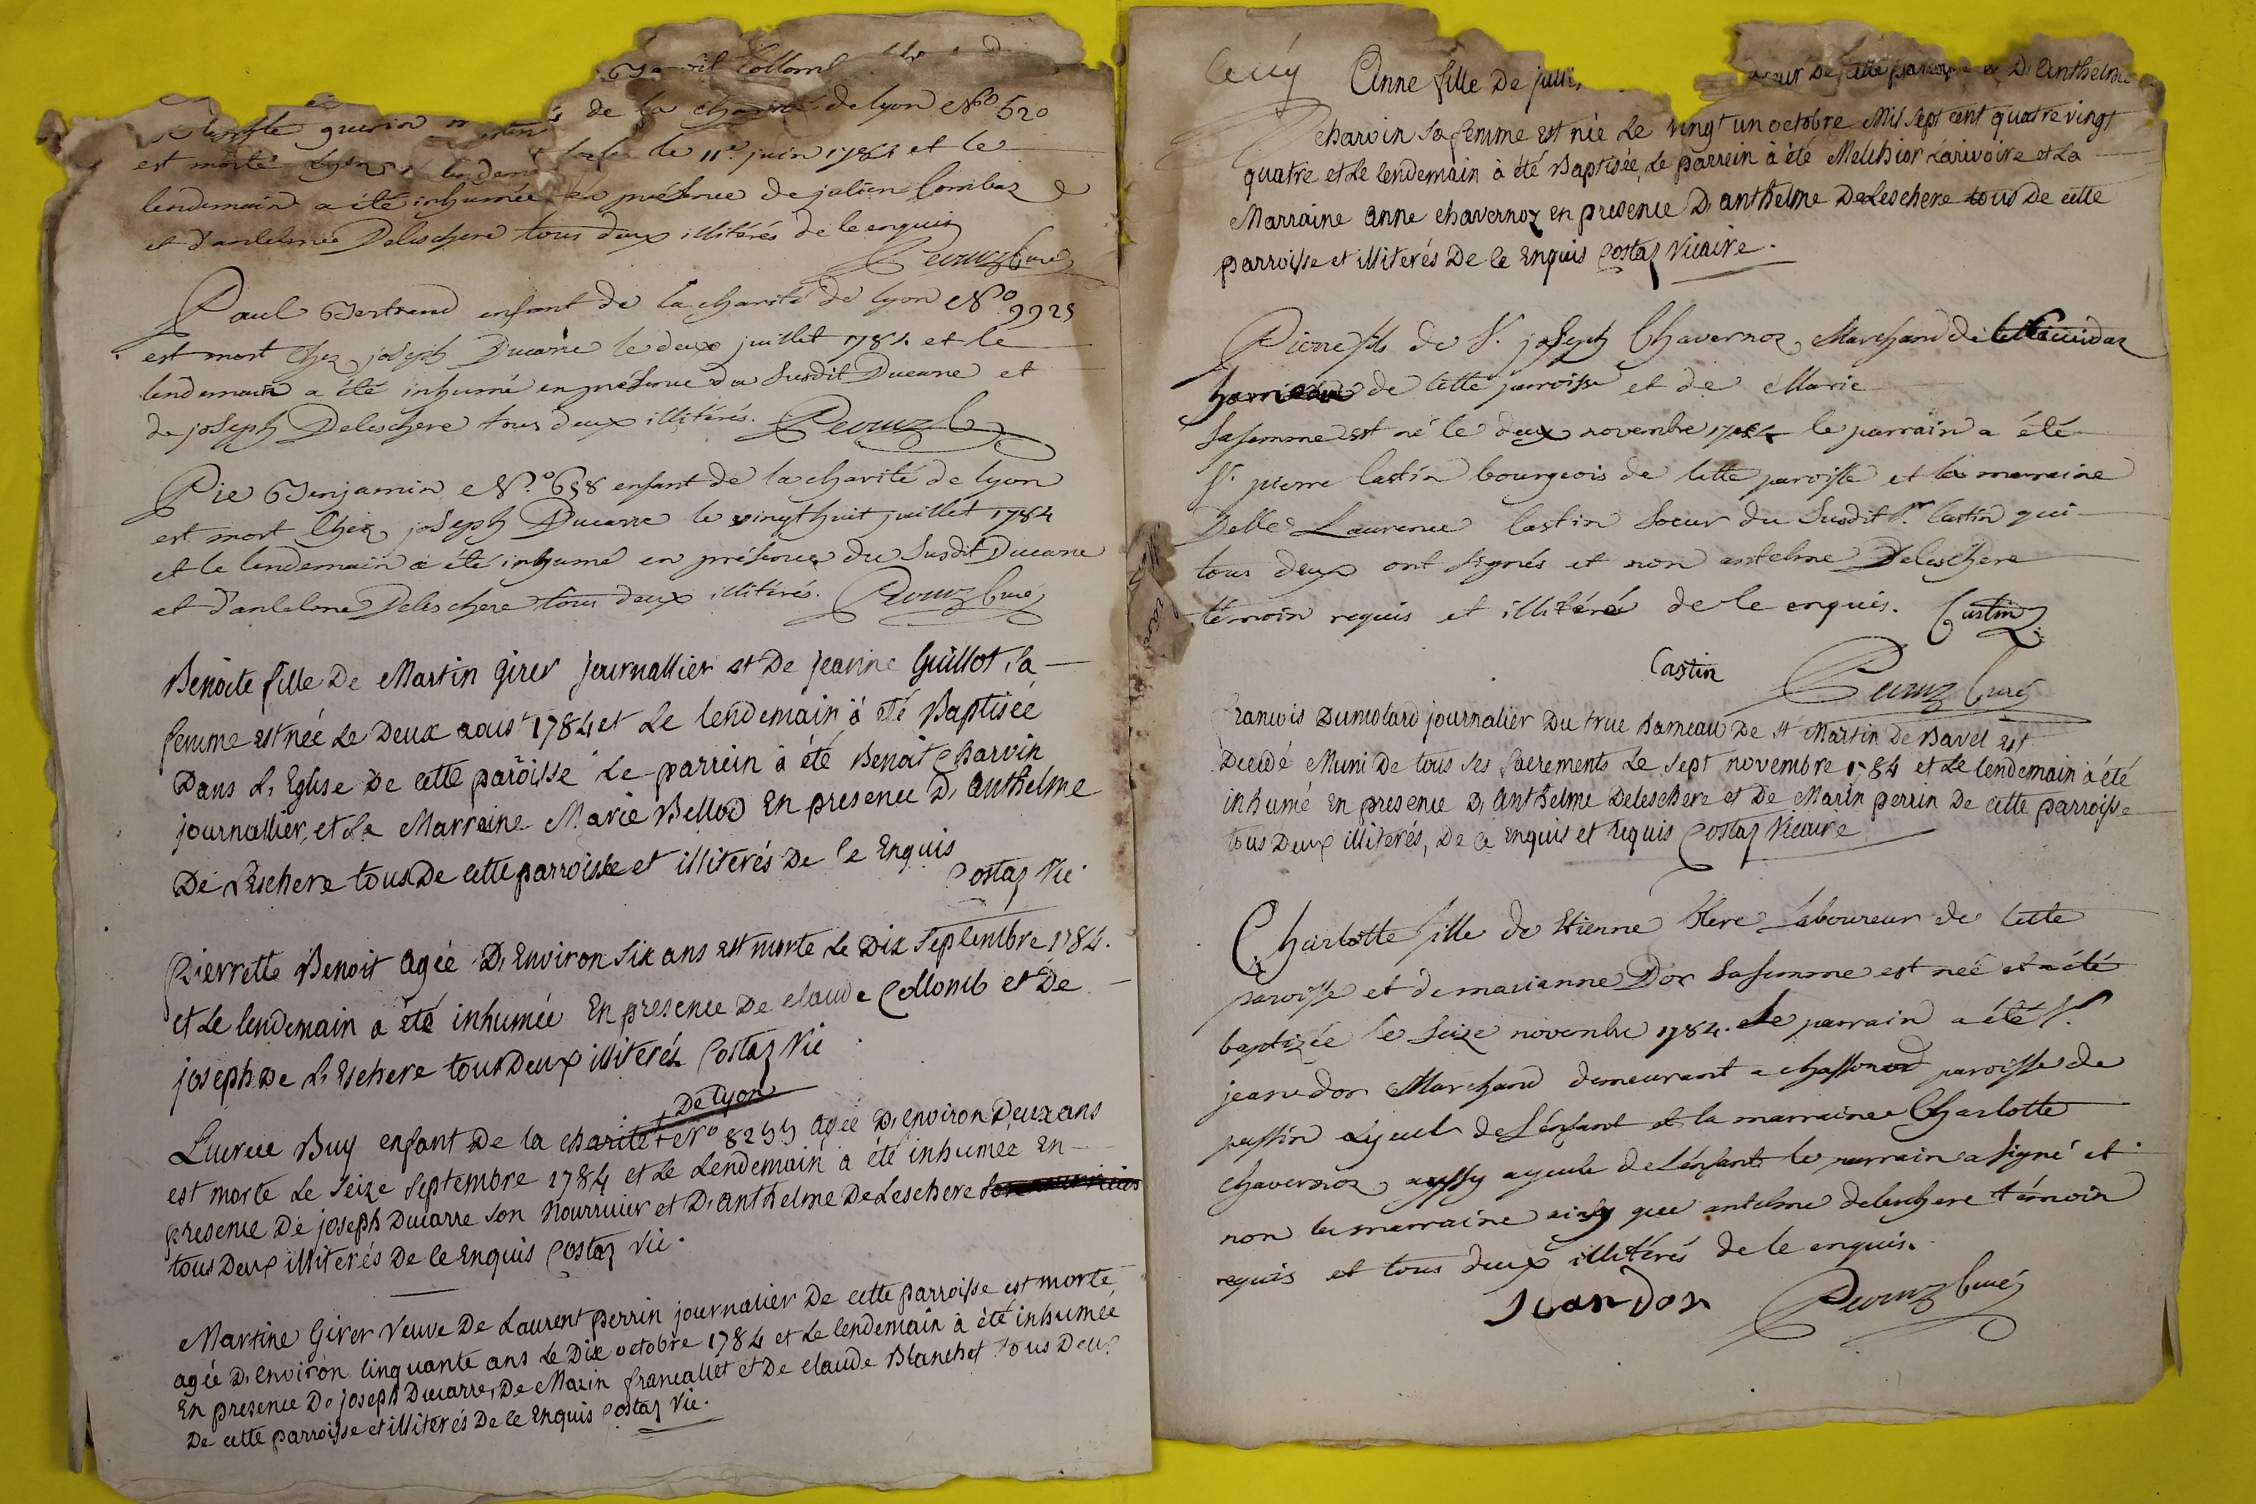 Collomb
guerin de la charité de lyon N° 520
est morte le 11e juin 1784 et le
lendemain a été inhumée en présence de julien Combaz
et d'antelme Deleschere tous deux illitérés de ce enquis
Peronz Curé
Paul Bertrand enfant de la charité de lyon N° 9925
est mort Chez joseph Ducarre le deux juillet 1784. et le
lendemain a été inhumé en présence du Susdit Ducarre et
de joseph Deleschere tous deux illitérés. Peronz C
Pie Benjamin N.° 658 enfant de la charité de lyon
est mort Chez joseph Ducarre le vingthuit juillet 1784
et le lendemain a été inhumé en présence du Susdit Ducarre
et d'antelme Deleschere tous deux illitérés. Peronz Curé
Benoite fille De Martin Girer journallier et De jeanne Guillot, sa
femme est née Le Deux aoust 1784 et Le lendemain à été Baptisée
Dans L'Eglise De cette paroisse Le parrein à été Benoit Charvin
journallier, et La Marreine Marie Bellod En presence D'anthelme
De Leschere tous De cette parroisse et illiterés De Ce Enquis
Costaz Vic.
Pierrette Benoit agée D'Environ Six ans est morte Le Dix Septembre 1784.
et Le lendemain a été inhumée En presence De claude Collomb et De
joseph De L'Eschere tous Deux illiterés Costaz Vic
De lyon
Lucrece Buy enfant De la charité + N° 8299 agée D'environ Deux ans
est morte Le Seize Septembre 1784 et Le Lendemain a été inhumée En
presence De joseph Ducarre son Nourricier et D'anthelme De Leschere
tous Deux illiterés De Ce Enquis Costaz Vic.
Martine Girer Veuve De Laurent perrin journalier De cette parroisse est morte
agée D'environ Cinquante ans Le Dix octobre 1784 et Le lendemain à été inhumée
En presence De joseph Ducarre, De Marin francallet et De claude Blanchet tous Deux
De cette parroisse et illiterés De Ce Enquis Costaz Vic.
Anne fille De de cette paroisse et D'Anthelme
charvin sa femme est née Le vingt un octobre Mil Sept cent quatre vingt
quatre et Le lendemain à été Baptisée, Le parrein à été Melchior Larivoire et La
Marraine Anne chavernoz en presence D'anthelme De Leschere tous De cette
parroisse et illiterés De Ce Enquis Costaz Vicaire.
Pierre fils de Sr. joseph Chavernoz Marchand
de cette paroisse et de Marie
Sa femme est né le deux novembre 1784 le parrain a été
Sr. pierre Castin bourgeois de cette paroisse et la marraine
Delle Laurence Castin Soeur du Susdit Sr. Castin qui
tous deux ont Signés et non antelme Deleschere
témoin requis et illitéré de ce enquis. Castin
Castin Peronz Curé
francois Dumolard journalier Du true hameau De St Martin De Bavel Est
Decedé Muni De tous ses Sacrements Le Sept novembre 1784 et Le lendemain à été
inhumé En presence D'Anthelme Deleschere et De Marin perrin De cette parroisse
tous Deux illiterés, De Ce Enquis et requis Costaz Vicaire
Charlotte fille de Etienne Clerc Laboureur de cette
paroisse et de marianne Dor Sa femme est née et a été
baptizée le Seize novembre 1784. Le parrain a été Sr.
jean dor Marchand demeurant a chassonod paroisse de
passin ayeul de L'enfant et la marraine Charlotte
Chavernoz aussy ayeule de L'enfant. le parrain a signé et
non la marraine ainsy que antelme deleschere témoin
requis et tous deux illitérés de ce enquis.
Jean Dor Peronz Curé